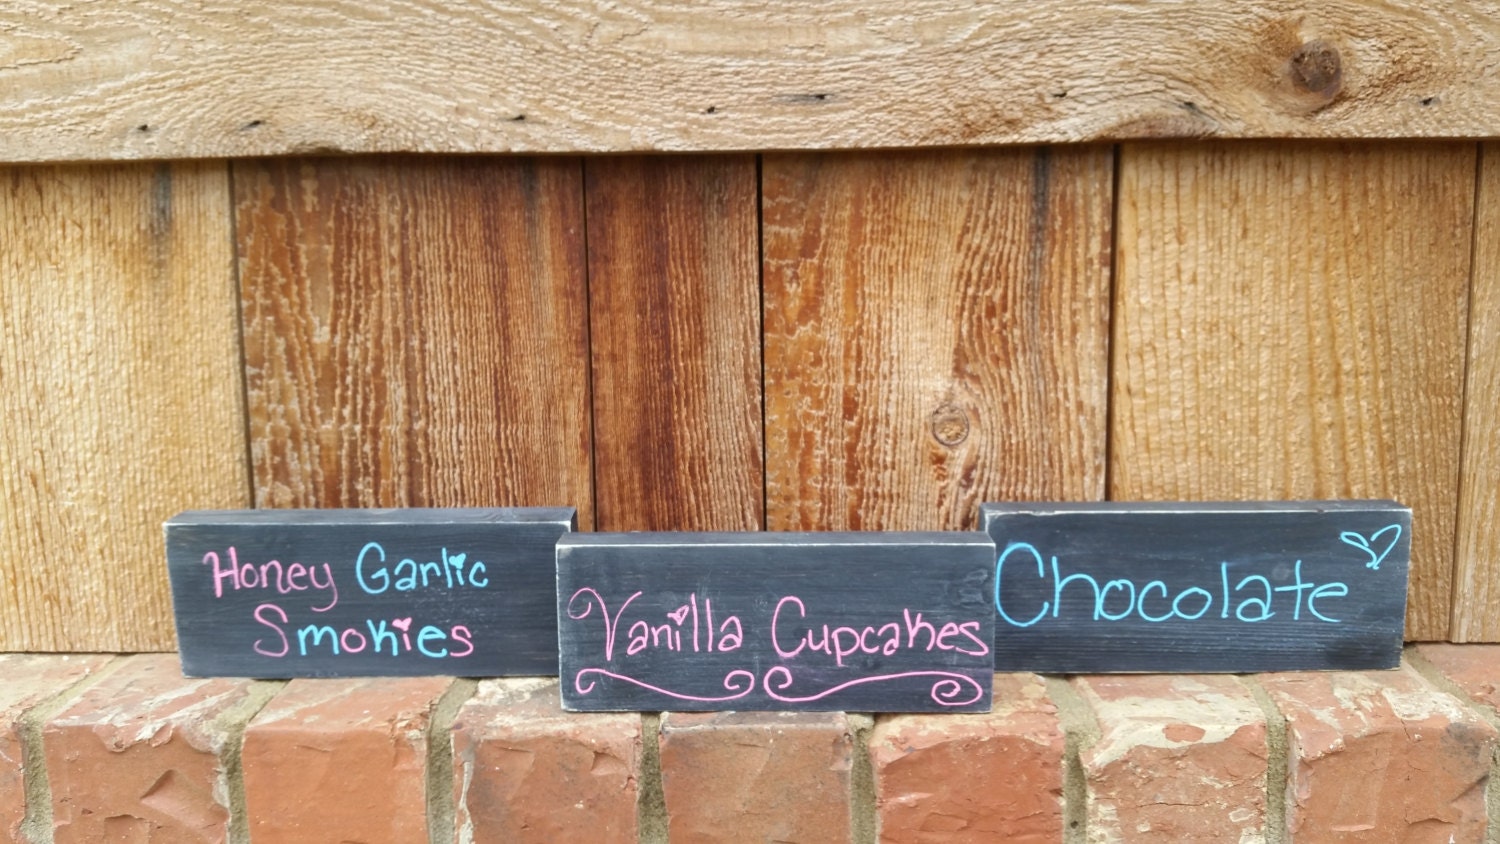 Honey Garlic
Smokies
Vanilla Cupcakes
Chocolate